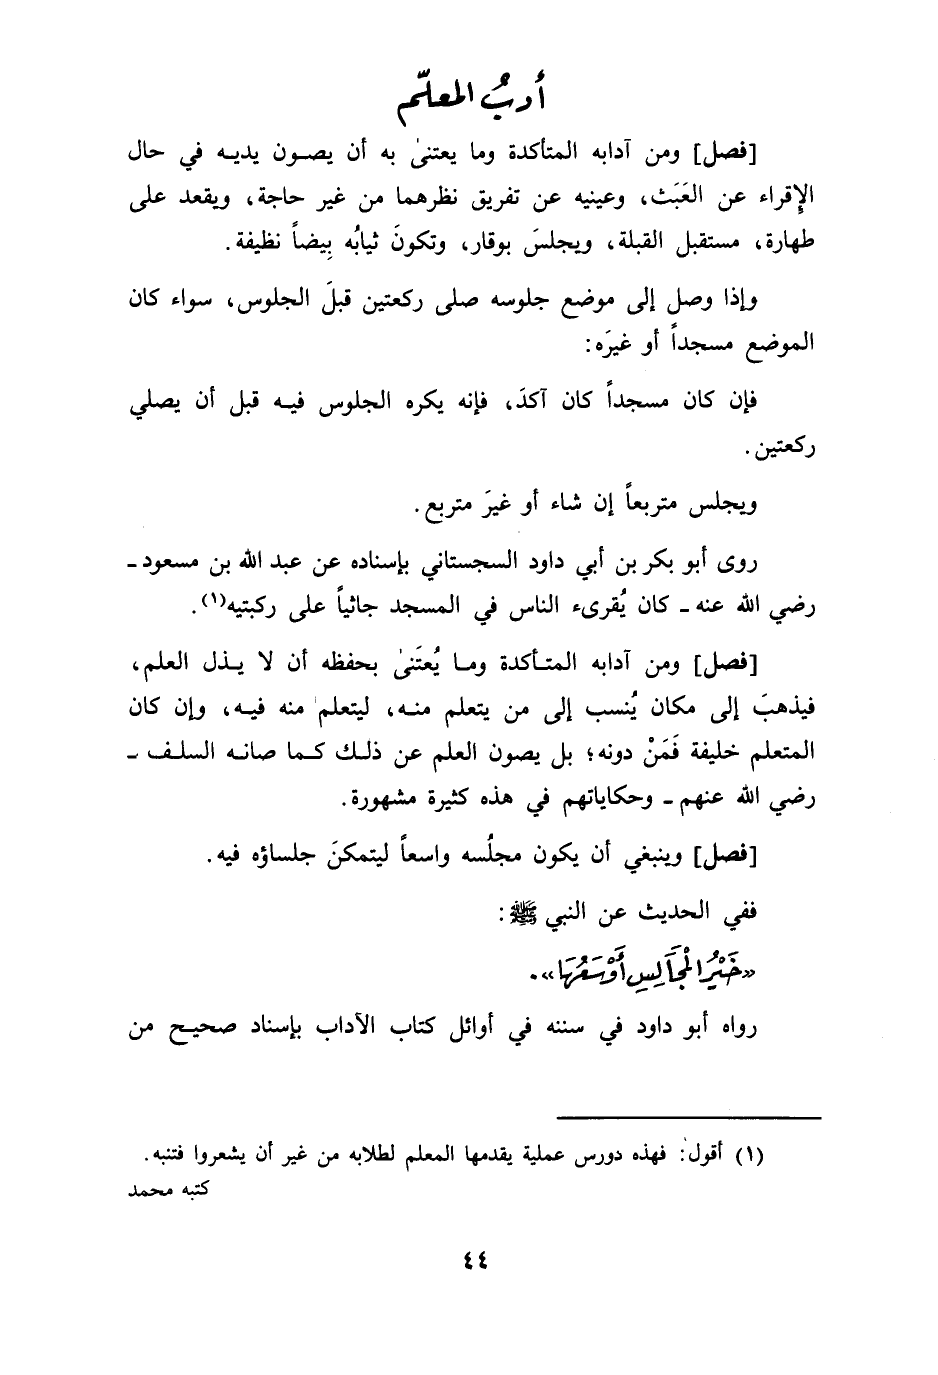 أدبُ المعلّم
[فصل] ومن آدابه المتأكدة وما يعتنىٰ به أن يصون يديه في حال
الإِقراء عن العَبَث، وعينيه عن تفريق نظرهما من غير حاجة، ويقعد على
طهارة، مستقبل القبلة، ويجلسَ بوقار، وتكونَ ثيابُه بِيضاً نظيفة.
وإذا وصل إلى موضع جلوسه صلى ركعتين قبلَ الجلوس، سواء كان
الموضع مسجداً أو غيرَه:
فإن كان مسجداً كان آكدَ، فإنه يكره الجلوس فيه قبل أن يصلي
ركعتين.
ويجلس متربعاً إن شاء أو غيرَ متربع.
روى أبو بكر بن أبي داود السجستاني بإسناده عن عبد الله بن مسعود -
رضي الله عنه - كان يُقرىء الناس في المسجد جاثياً على ركبتيه(١).
[فصل] ومن آدابه المتأكدة وما يُعتَنىٰ بحفظه أن لا يذل العلم،
فيذهبَ إلى مكان يُنسب إلى من يتعلم منه، ليتعلم منه فيه، وإن كان
المتعلم خليفة فَمَنْ دونه؛ بل يصون العلم عن ذلك كما صانه السلف -
رضي الله عنهم - وحكاياتهم في هذه كثيرة مشهورة.
[فصل] وينبغي أن يكون مجلُسه واسعاً ليتمكنَ جلساؤه فيه.
ففي الحديث عن النبي ﷺ:
«خَيْرُ الْمَجَالِسِ أَوْسَعُهَا».
رواه أبو داود في سننه في أوائل كتاب الآداب بإسناد صحيح من
(١) أقول: فهذه دورس عملية يقدمها المعلم لطلابه من غير أن يشعروا فتنبه.
كتبه محمد
٤٤